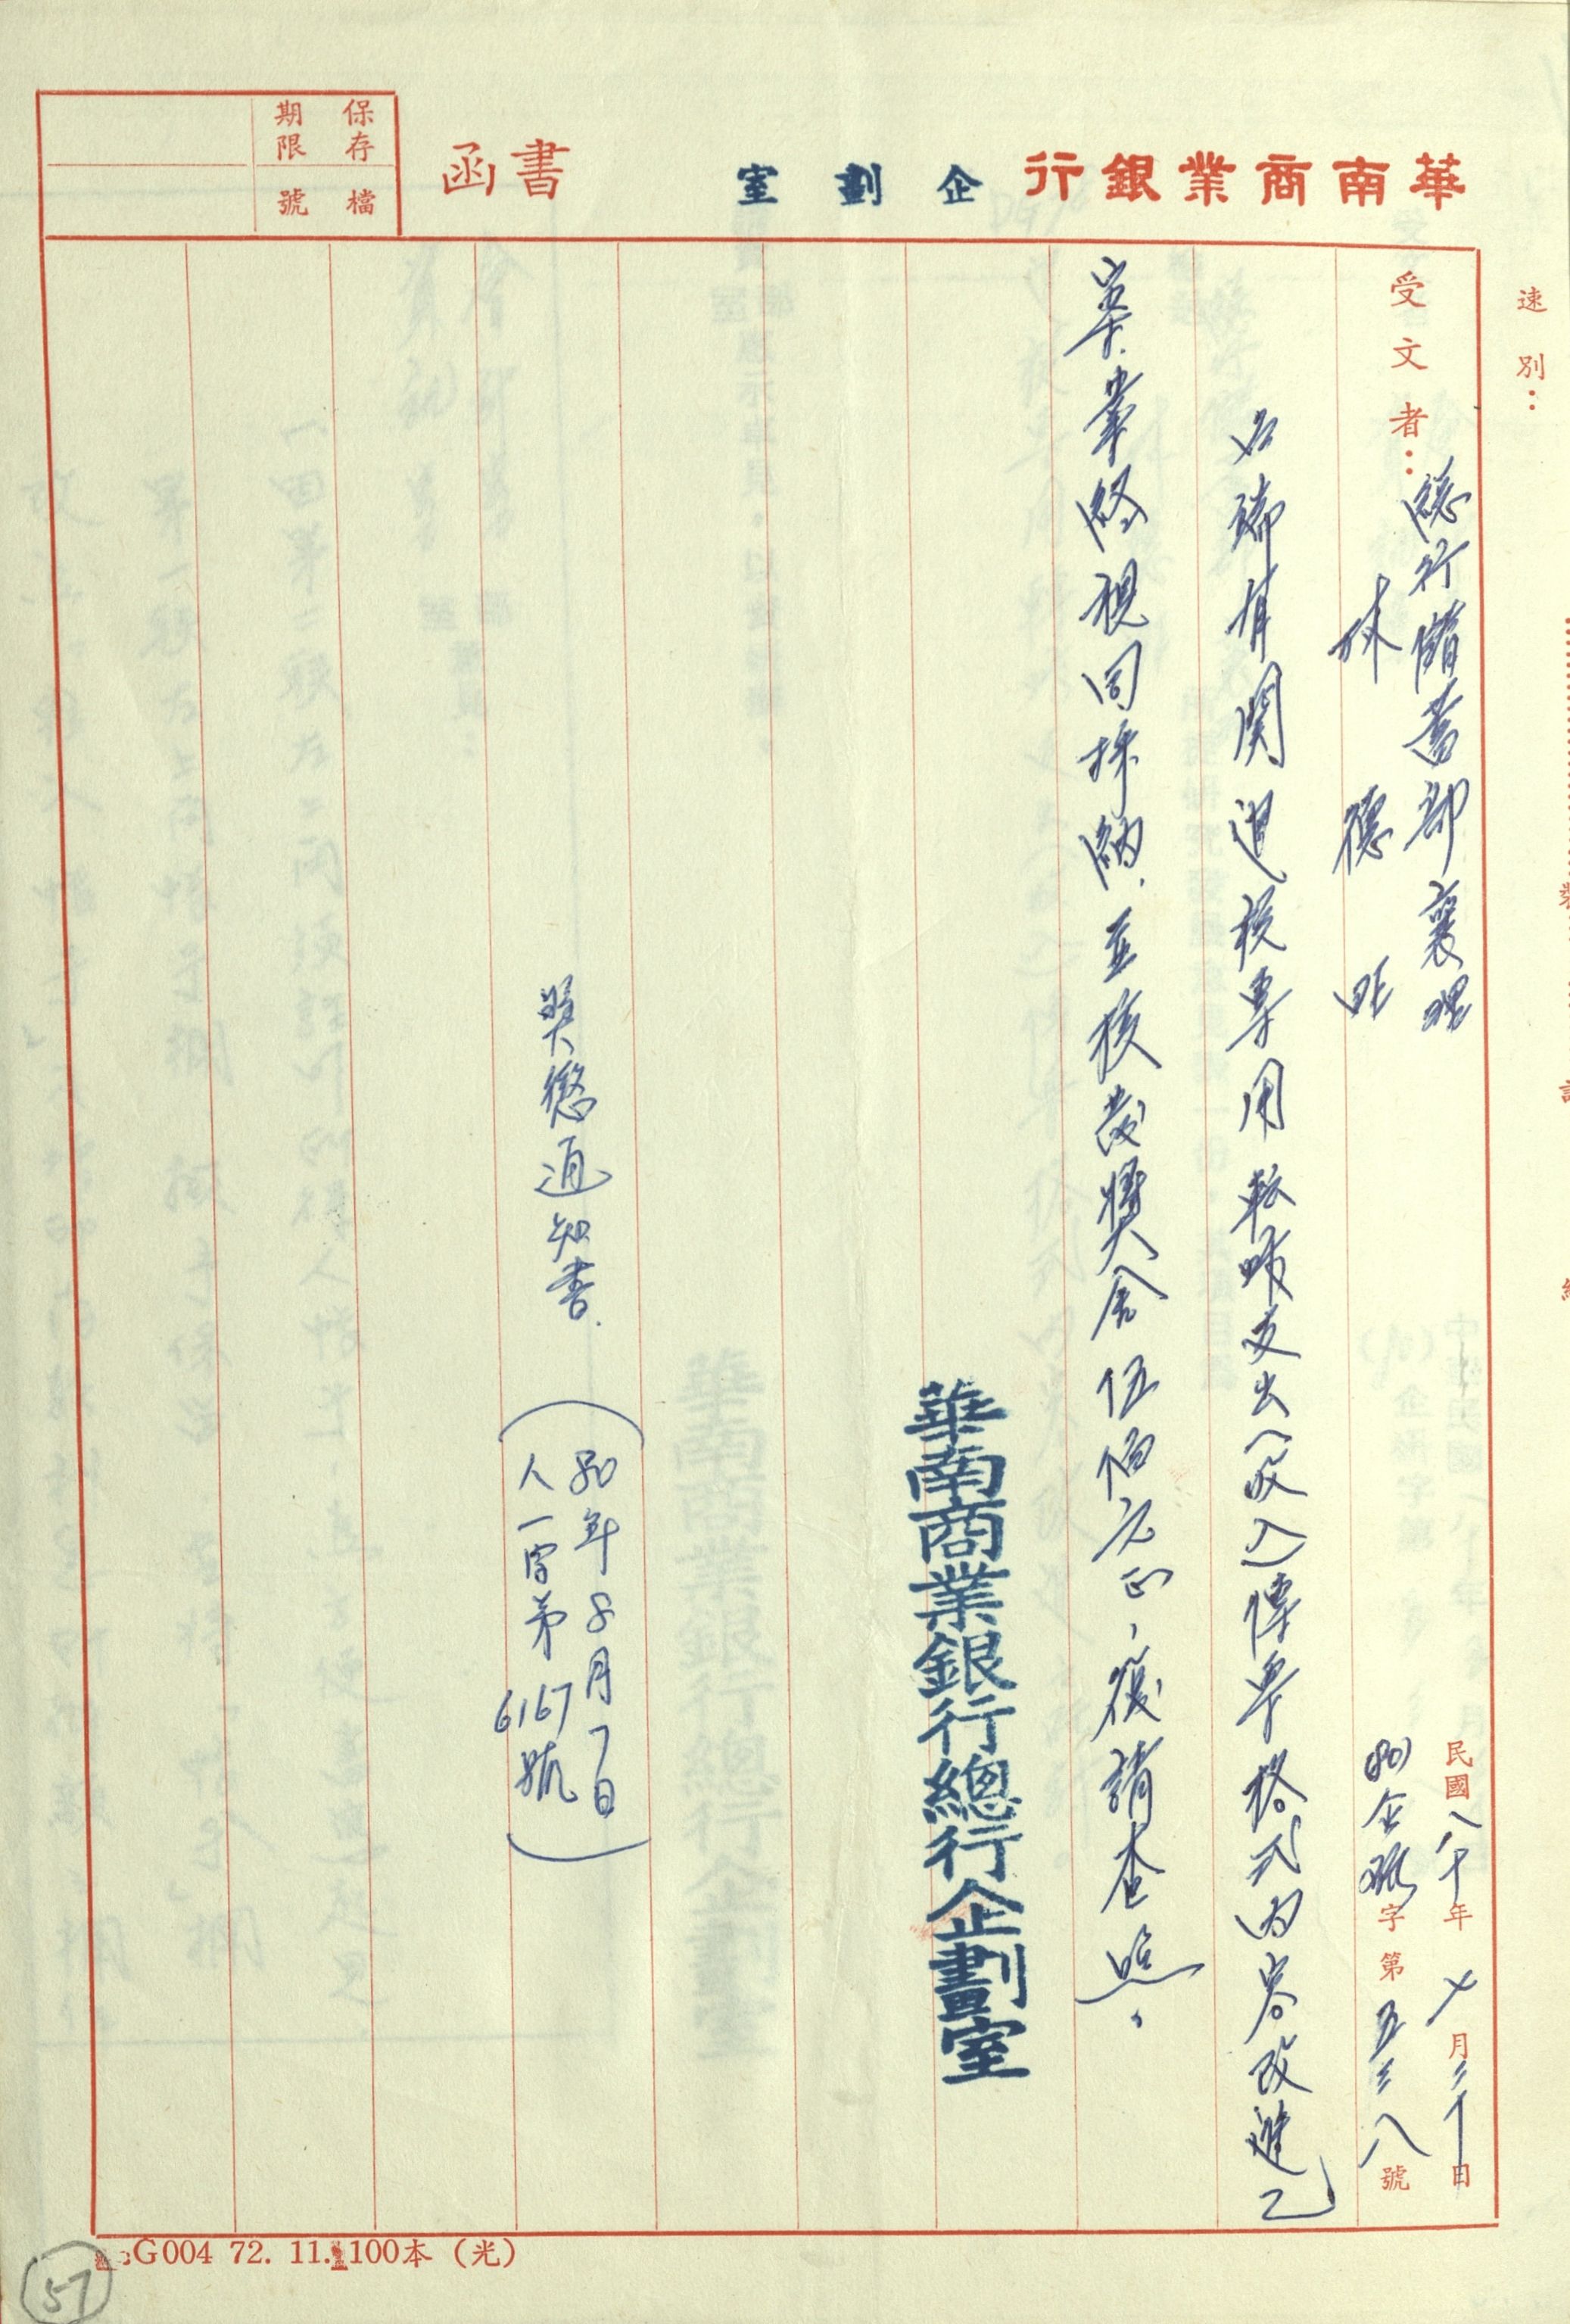 華南商業銀行 企劃室 書函
保存期限
檔號
速別：
受文者：總行儲蓄部襄理
林德旺
民國八十年七月三十日
(80)企研字第五三八號
台端有關退稅專用 轉帳支出(收入)傳票格式內容改進乙
案，業經視同採納，並核發獎金伍佰元正，復請查照。
華南商業銀行總行企劃室
獎懲通知書.
(80年8月7日
人一字第6167號)
G004 72. 11. 100本（光）
57